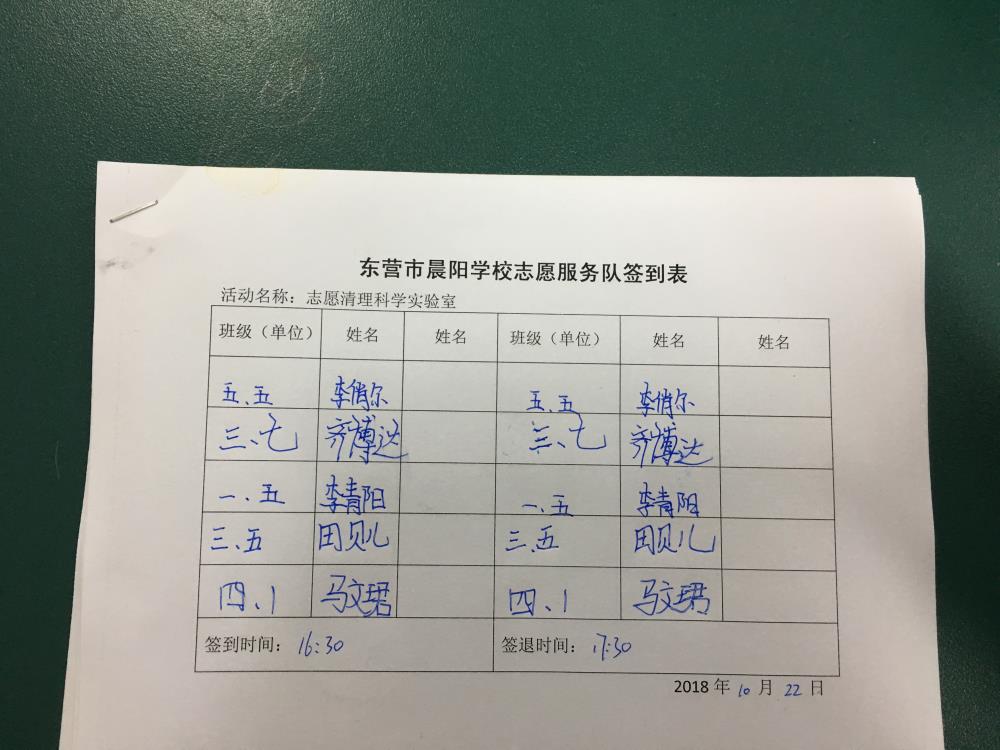 东营市晨阳学校志愿服务队签到表
活动名称：志愿清理科学实验室
班级（单位） 姓名 姓名 班级（单位） 姓名 姓名
五.五 李俏尔 五.五 李俏尔
三、七 齐博达 三、七 齐博达
一、五 李青阳 一、五 李青阳
三、五 田贝儿 三、五 田贝儿
四、1 马文珺 四、1 马文珺
签到时间：16:30 签退时间：17:30
2018 年 10 月 22 日